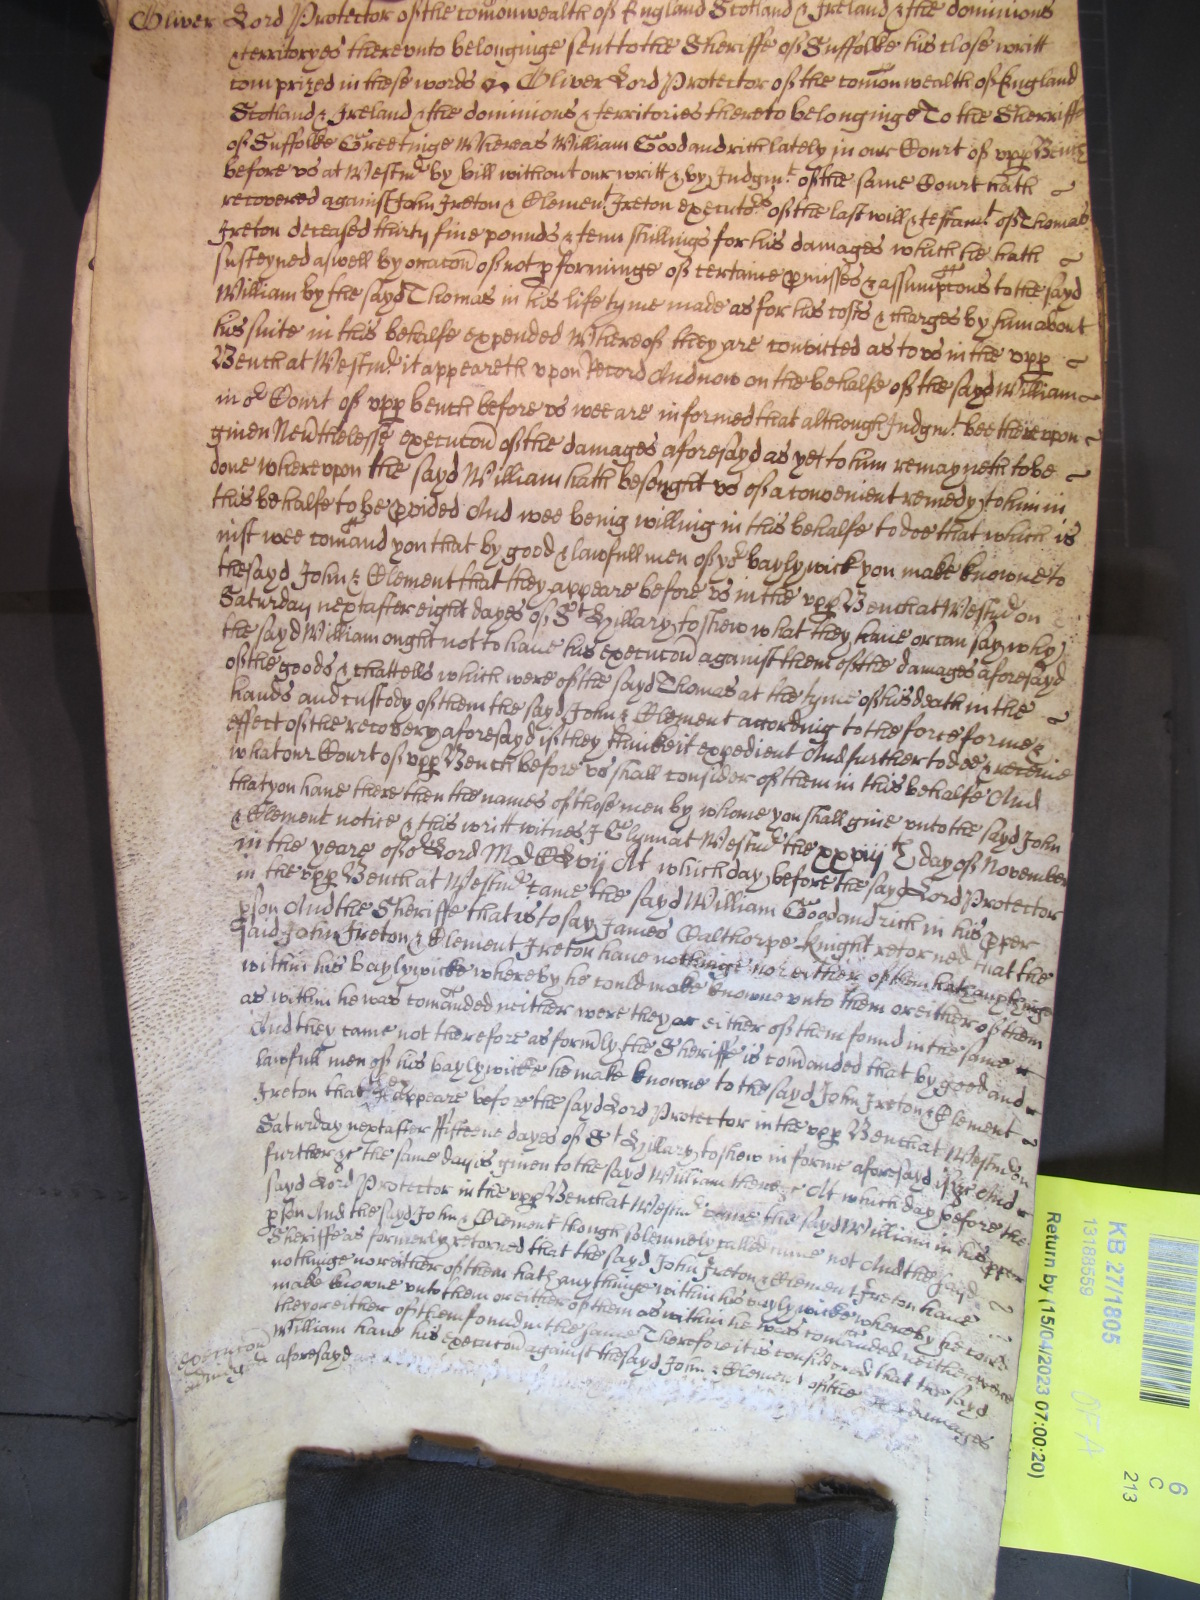 Oliver Lord Protector of the comonwealth of England Scotland & Ireland & the dominions
& territoryes therevnto belonginge sent to the Sheriffe of Suffolke his close writt
comprized in these words Oliver Lord Protector of the comonwealth of England
Scotland & Ireland & the dominions & territories thereto belonginge To the Sherriffe
of Suffolke Greetinge Whereas William Goodandrich lately in our Court of vpp Bench
before vs at Westmr by bill without our writt & by Judgmt of the same Court hath
recovered against John Ireton & Clement Ireton executors of the last will & testamt of Thomas
Ireton deceased thirty five pounds & tenn shillings for his damages which he hath
susteyned aswell by occacon of not pforminge of certaine pmisses & assumpcons to the sayd
William by the sayd Thomas in his life tyme made as for his costs & charges by him about
his suite in this behalfe expended Whereof they are convicted as to vs in the vpp
Bench at Westmr it appeareth vpon Record And now on the behalfe of the sayd William
in or Court of vpp bench before vs wee are informed that although Judgmt bee therevpon
given Nevthelesse execucon of the damages aforesayd as yet to him remayneth to be
done wherevpon the sayd William hath besought vs of a convenient remedy to him in
this behalfe to be pvided And wee being willing in this behalfe to doe that which is
iust wee comand you that by good & lawfull men of yor baylywick you make knowne to
the sayd John & Clement that they appeare before vs in the vpp Bench at Westmr on
Saturday next after eight dayes of St Hillary to shew what they have or can say why
the sayd William ought not to have his execucon against them of the damages aforesayd
of the goods & chattells which were of the sayd Thomas at the tyme of his death in the
hands and custody of them the sayd John & Clement according to the force forme &
effect of the recovery aforesayd if they thinke it expedient And further to doe & receive
what our Court of vpp Bench before vs shall consider of them in this behalfe And
that you have there then the names of those men by whome you shall give vnto the sayd John
& Clement notice & this writt witnes J Glynn at Westmr the xxviijth day of November
in the yeare of or Lord MDCLvij At which day before the sayd Lord Protector
in the vpp Bench at Westmr came the sayd William Goodandrich in his pper
pson And the Sheriffe that is to say James Calthorpe Knight retorned that the
said John Ireton & Clement Ireton have nothinge nor either of them hath anythinge
within his baylywicke whereby he could make knowne vnto them or either of them
as within he was comanded neither were they or either of them found in the same
And they came not therefore as formly the Sheriffe is comanded that by good and
lawfull men of his baylywicke he make knowne to the sayd John Ireton & Clement
Ireton that they appeare before the sayd Lord Protector in the vpp Bench at Westmr on
Saturday next after fifteene dayes of St Hillary to shew in forme aforesayd if &c And
further &c the same day is given to the sayd William there &c At which day before the
sayd Lord Protector in the vpp Bench at Westmr came the sayd William in his pper
pson And the sayd John & Clement though solemnely called came not And the sayd
Sheriffe as formerly retorned that the sayd John Ireton & Clement Ireton have
nothinge nor either of them hath anythinge within his baylywicke whereby he could
make knowne vnto them or either of them as within he was comanded neither were
they or either of them found in the same Therefore it is considered that the sayd
William have his execucon against the sayd John & Clement of the damages
aforesayd
Execucon
KB 27/1805
13188559
Return by (15/04/2023 07:00:20)
6
C
213